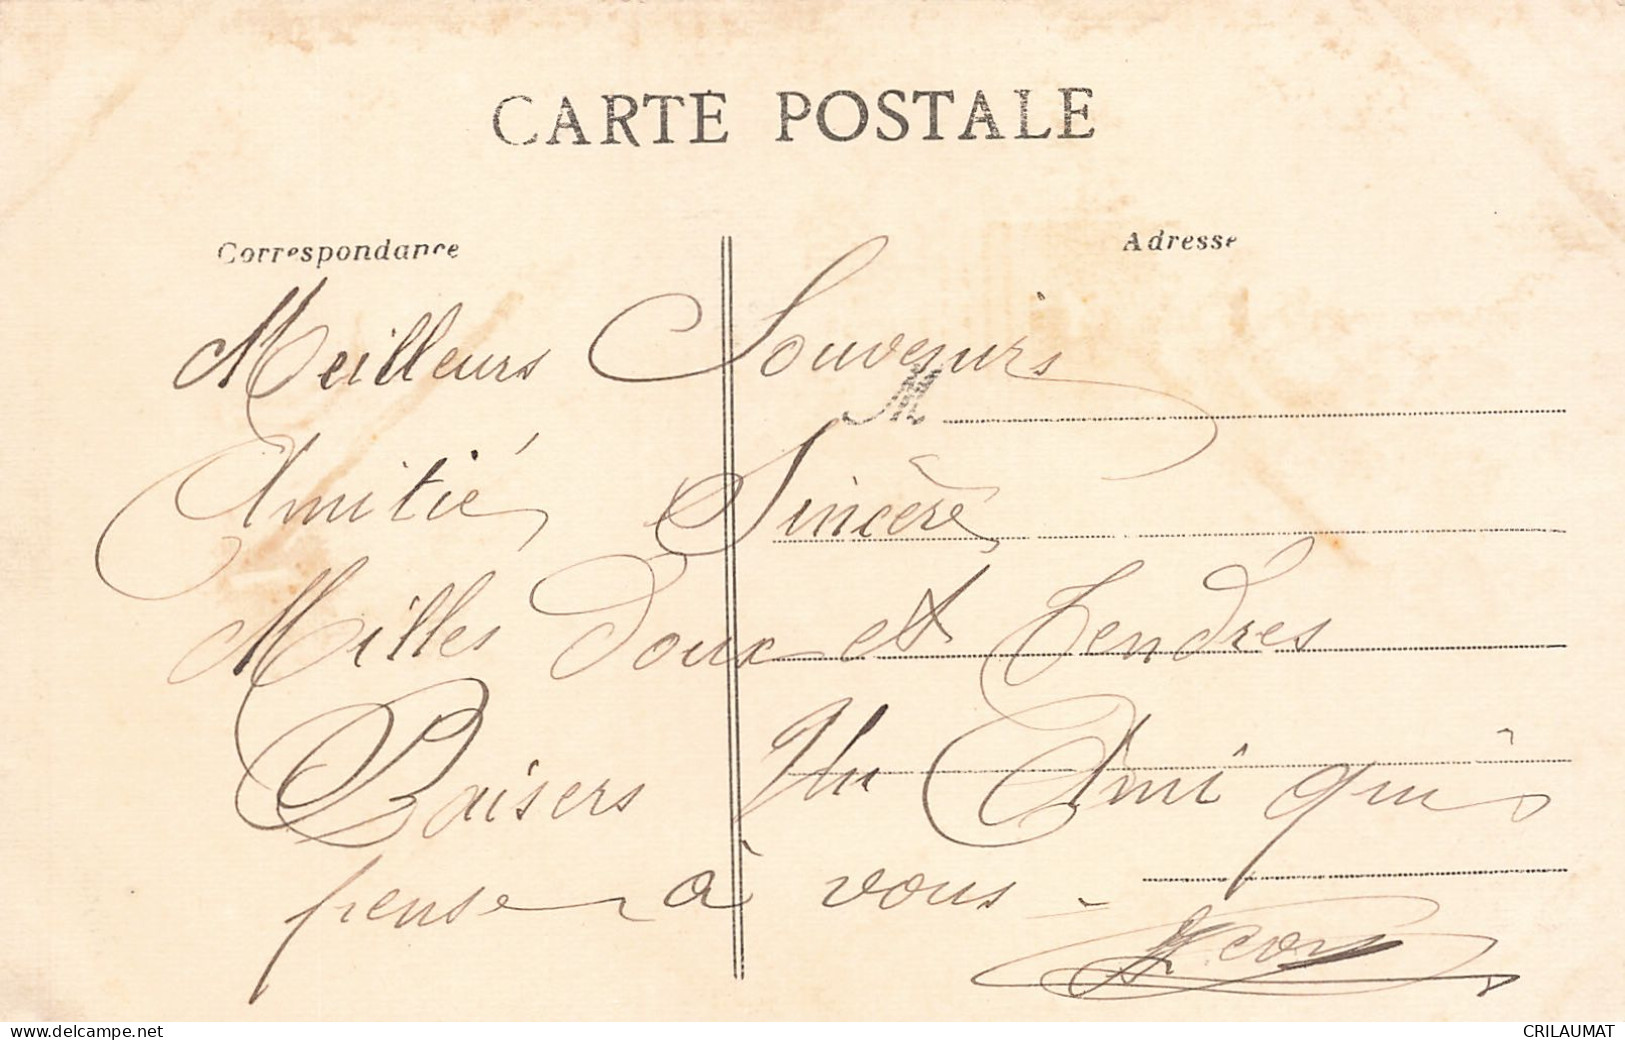 CARTE POSTALE
Correspondance
Adresse
Meilleurs Souvenirs
M
Amitié Sincère
Milles doux et tendres
Baisers Un Ami qui
pense à vous -
www.delcampe.net
CRILAUMAT